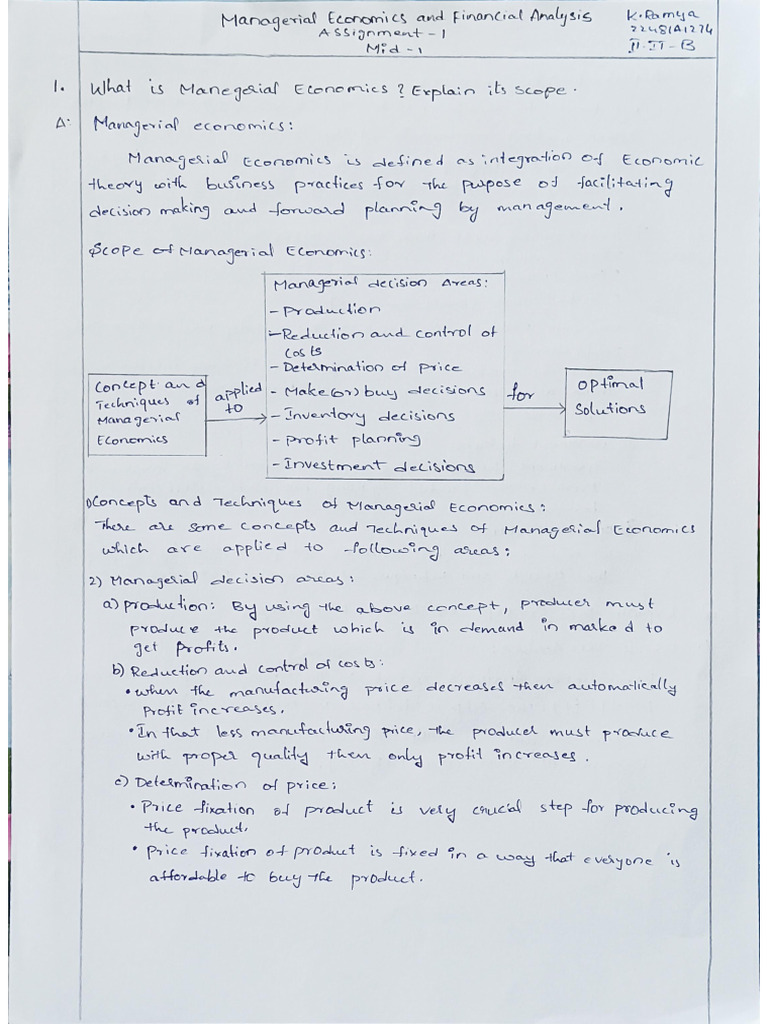 Managerial Economics and Financial Analysis
Assignment - 1
Mid - 1
K. Ramya
22481A1274
II-II-B
1. What is Manegerial Economics? Explain its scope.
A: Managerial economics:
Managerial Economics is defined as integration of Economic
theory with business practices for the pupose of facilitating
decision making and forward planning by management.
Scope of Managerial Economics:
Managerial decision Areas:
- Production
- Reduction and control of
costs
- Determination of price
- Make (or) buy decisions
- Inventory decisions
- Profit planning
- Investment decisions
Concept and
Techniques of
Managerial
Economics
applied
to
for
Optimal
Solutions
1) Concepts and Techniques of Managerial Economics:
There are some concepts and techniques of Managerial Economics
which are applied to following areas:
2) Managerial decision areas:
a) production: By using the above concept, producer must
produce the product which is in demand in marked to
get profits.
b) Reduction and control of costs:
• When the manufacturing price decreases then automatically
Profit increases.
• In that less manufacturing price, the producer must produce
with proper quality then only profit increases.
c) Determination of price:
• Price fixation of product is very crucial step for producing
the product.
• Price fixation of product is fixed in a way that everyone is
affordable to buy the product.